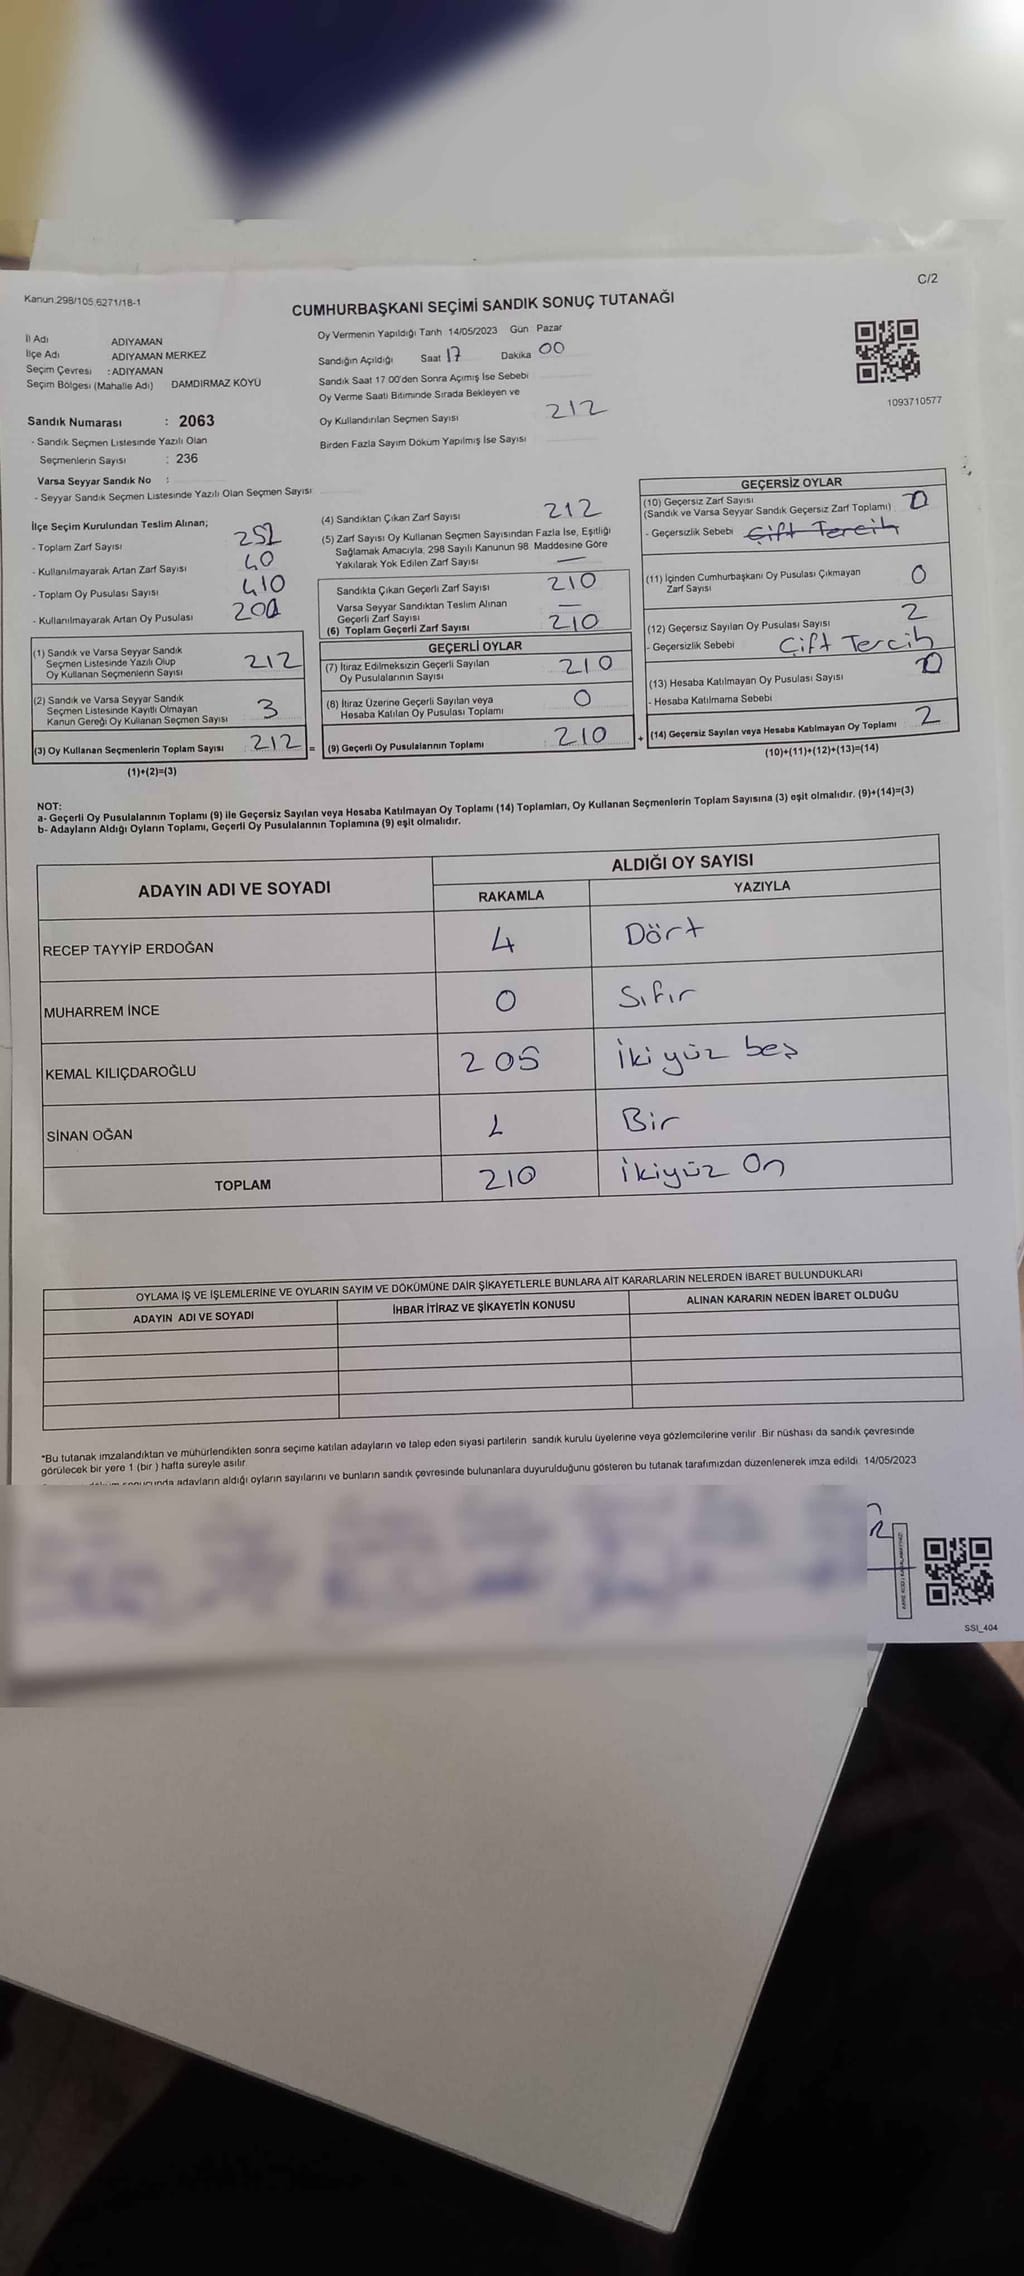 Kanun 298/105 6271/18-1
C/2
CUMHURBAŞKANI SEÇİMİ SANDIK SONUÇ TUTANAĞI
İl Adı ADIYAMAN
İlçe Adı ADIYAMAN MERKEZ
Seçim Çevresi : ADIYAMAN
Seçim Bölgesi (Mahalle Adı) DAMDIRMAZ KÖYÜ
Oy Vermenin Yapıldığı Tarih 14/05/2023 Gün Pazar
Sandığın Açıldığı Saat 17 Dakika 00
Sandık Saat 17 00'den Sonra Açımış İse Sebebi
Oy Verme Saati Bitiminde Sırada Bekleyen ve
Oy Kullandırılan Seçmen Sayısı 212
Birden Fazla Sayım Döküm Yapılmış İse Sayısı
1093710577
Sandık Numarası : 2063
- Sandık Seçmen Listesinde Yazılı Olan
Seçmenlerin Sayısı : 236
Varsa Seyyar Sandık No :
- Seyyar Sandık Seçmen Listesinde Yazılı Olan Seçmen Sayısı
İlçe Seçim Kurulundan Teslim Alınan;
- Toplam Zarf Sayısı 252
- Kullanılmayarak Artan Zarf Sayısı 40
- Toplam Oy Pusulası Sayısı 410
- Kullanılmayarak Artan Oy Pusulası
(1) Sandık ve Varsa Seyyar Sandık
Seçmen Listesinde Yazılı Olup
Oy Kullanan Seçmenlerin Sayısı 212
(2) Sandık ve Varsa Seyyar Sandık
Seçmen Listesinde Kayıtlı Olmayan
Kanun Gereği Oy Kullanan Seçmen Sayısı 3
(3) Oy Kullanan Seçmenlerin Toplam Sayısı 212 =
(1)+(2)=(3)
(4) Sandıktan Çıkan Zarf Sayısı 212
(5) Zarf Sayısı Oy Kullanan Seçmen Sayısından Fazla İse, Eşitliği
Sağlamak Amacıyla, 298 Sayılı Kanunun 98 Maddesine Göre
Yakılarak Yok Edilen Zarf Sayısı —
Sandıkta Çıkan Geçerli Zarf Sayısı 210
Varsa Seyyar Sandıktan Teslim Alınan
Geçerli Zarf Sayısı —
(6) Toplam Geçerli Zarf Sayısı 210
GEÇERLİ OYLAR
(7) İtiraz Edilmeksizin Geçerli Sayılan
Oy Pusulalarının Sayısı 210
(8) İtiraz Üzerine Geçerli Sayılan veya
Hesaba Katılan Oy Pusulası Toplamı 0
(9) Geçerli Oy Pusulalarının Toplamı 210 +
GEÇERSİZ OYLAR
(10) Geçersiz Zarf Sayısı
(Sandık ve Varsa Seyyar Sandık Geçersiz Zarf Toplamı) 0
- Geçersizlik Sebebi Çift Tercih
(11) İçinden Cumhurbaşkanı Oy Pusulası Çıkmayan
Zarf Sayısı 0
(12) Geçersiz Sayılan Oy Pusulası Sayısı 2
- Geçersizlik Sebebi Çift Tercih
(13) Hesaba Katılmayan Oy Pusulası Sayısı 0
- Hesaba Katılmama Sebebi
(14) Geçersiz Sayılan veya Hesaba Katılmayan Oy Toplamı 2
(10)+(11)+(12)+(13)=(14)
NOT:
a- Geçerli Oy Pusulalarının Toplamı (9) ile Geçersiz Sayılan veya Hesaba Katılmayan Oy Toplamı (14) Toplamları, Oy Kullanan Seçmenlerin Toplam Sayısına (3) eşit olmalıdır. (9)+(14)=(3)
b- Adayların Aldığı Oyların Toplamı, Geçerli Oy Pusulalarının Toplamına (9) eşit olmalıdır.
ADAYIN ADI VE SOYADI
ALDIĞI OY SAYISI
RAKAMLA YAZIYLA
RECEP TAYYİP ERDOĞAN 4 Dört
MUHARREM İNCE 0 Sıfır
KEMAL KILIÇDAROĞLU 205 İkiyüz beş
SİNAN OĞAN 1 Bir
TOPLAM 210 ikiyüz On
OYLAMA İŞ VE İŞLEMLERİNE VE OYLARIN SAYIM VE DÖKÜMÜNE DAİR ŞİKAYETLERLE BUNLARA AİT KARARLARIN NELERDEN İBARET BULUNDUKLARI
ADAYIN ADI VE SOYADI İHBAR İTİRAZ VE ŞİKAYETİN KONUSU ALINAN KARARIN NEDEN İBARET OLDUĞU
*Bu tutanak imzalandıktan ve mühürlendikten sonra seçime katılan adayların ve talep eden siyasi partilerin sandık kurulu üyelerine veya gözlemcilerine verilir .Bir nüshası da sandık çevresinde
görülecek bir yere 1 (bir ) hafta süreyle asılır
adayların aldığı oyların sayılarını ve bunların sandık çevresinde bulunanlara duyurulduğunu gösteren bu tutanak tarafımızdan düzenlenerek imza edildi 14/05/2023
SSI_404